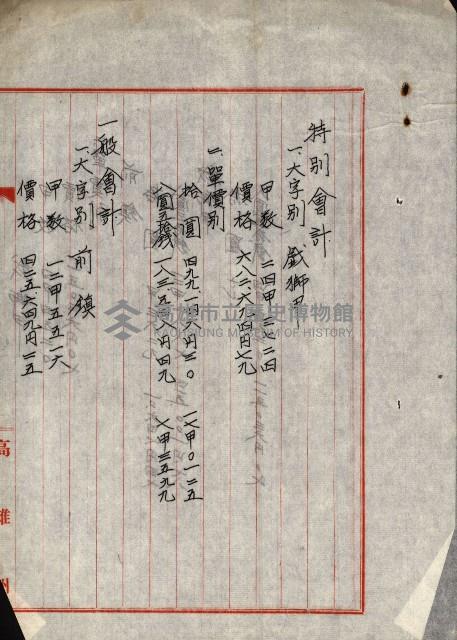 特別會計
一、大字別 戲獅甲
甲数 二四甲三七二四
價格 六八二、六九四円七九
二、單價別
拾圓 四九九、一四六円三〇 一七甲〇一二五
八圓五拾戔 一八三、五四八円四九 七甲三五九九
一般會計
一、大字別 前鎮
甲数 一二甲五五一六
價格 四二五六四九円二五
高雄州
高雄市立歷史博物館
KAOHSIUNG MUSEUM OF HISTORY